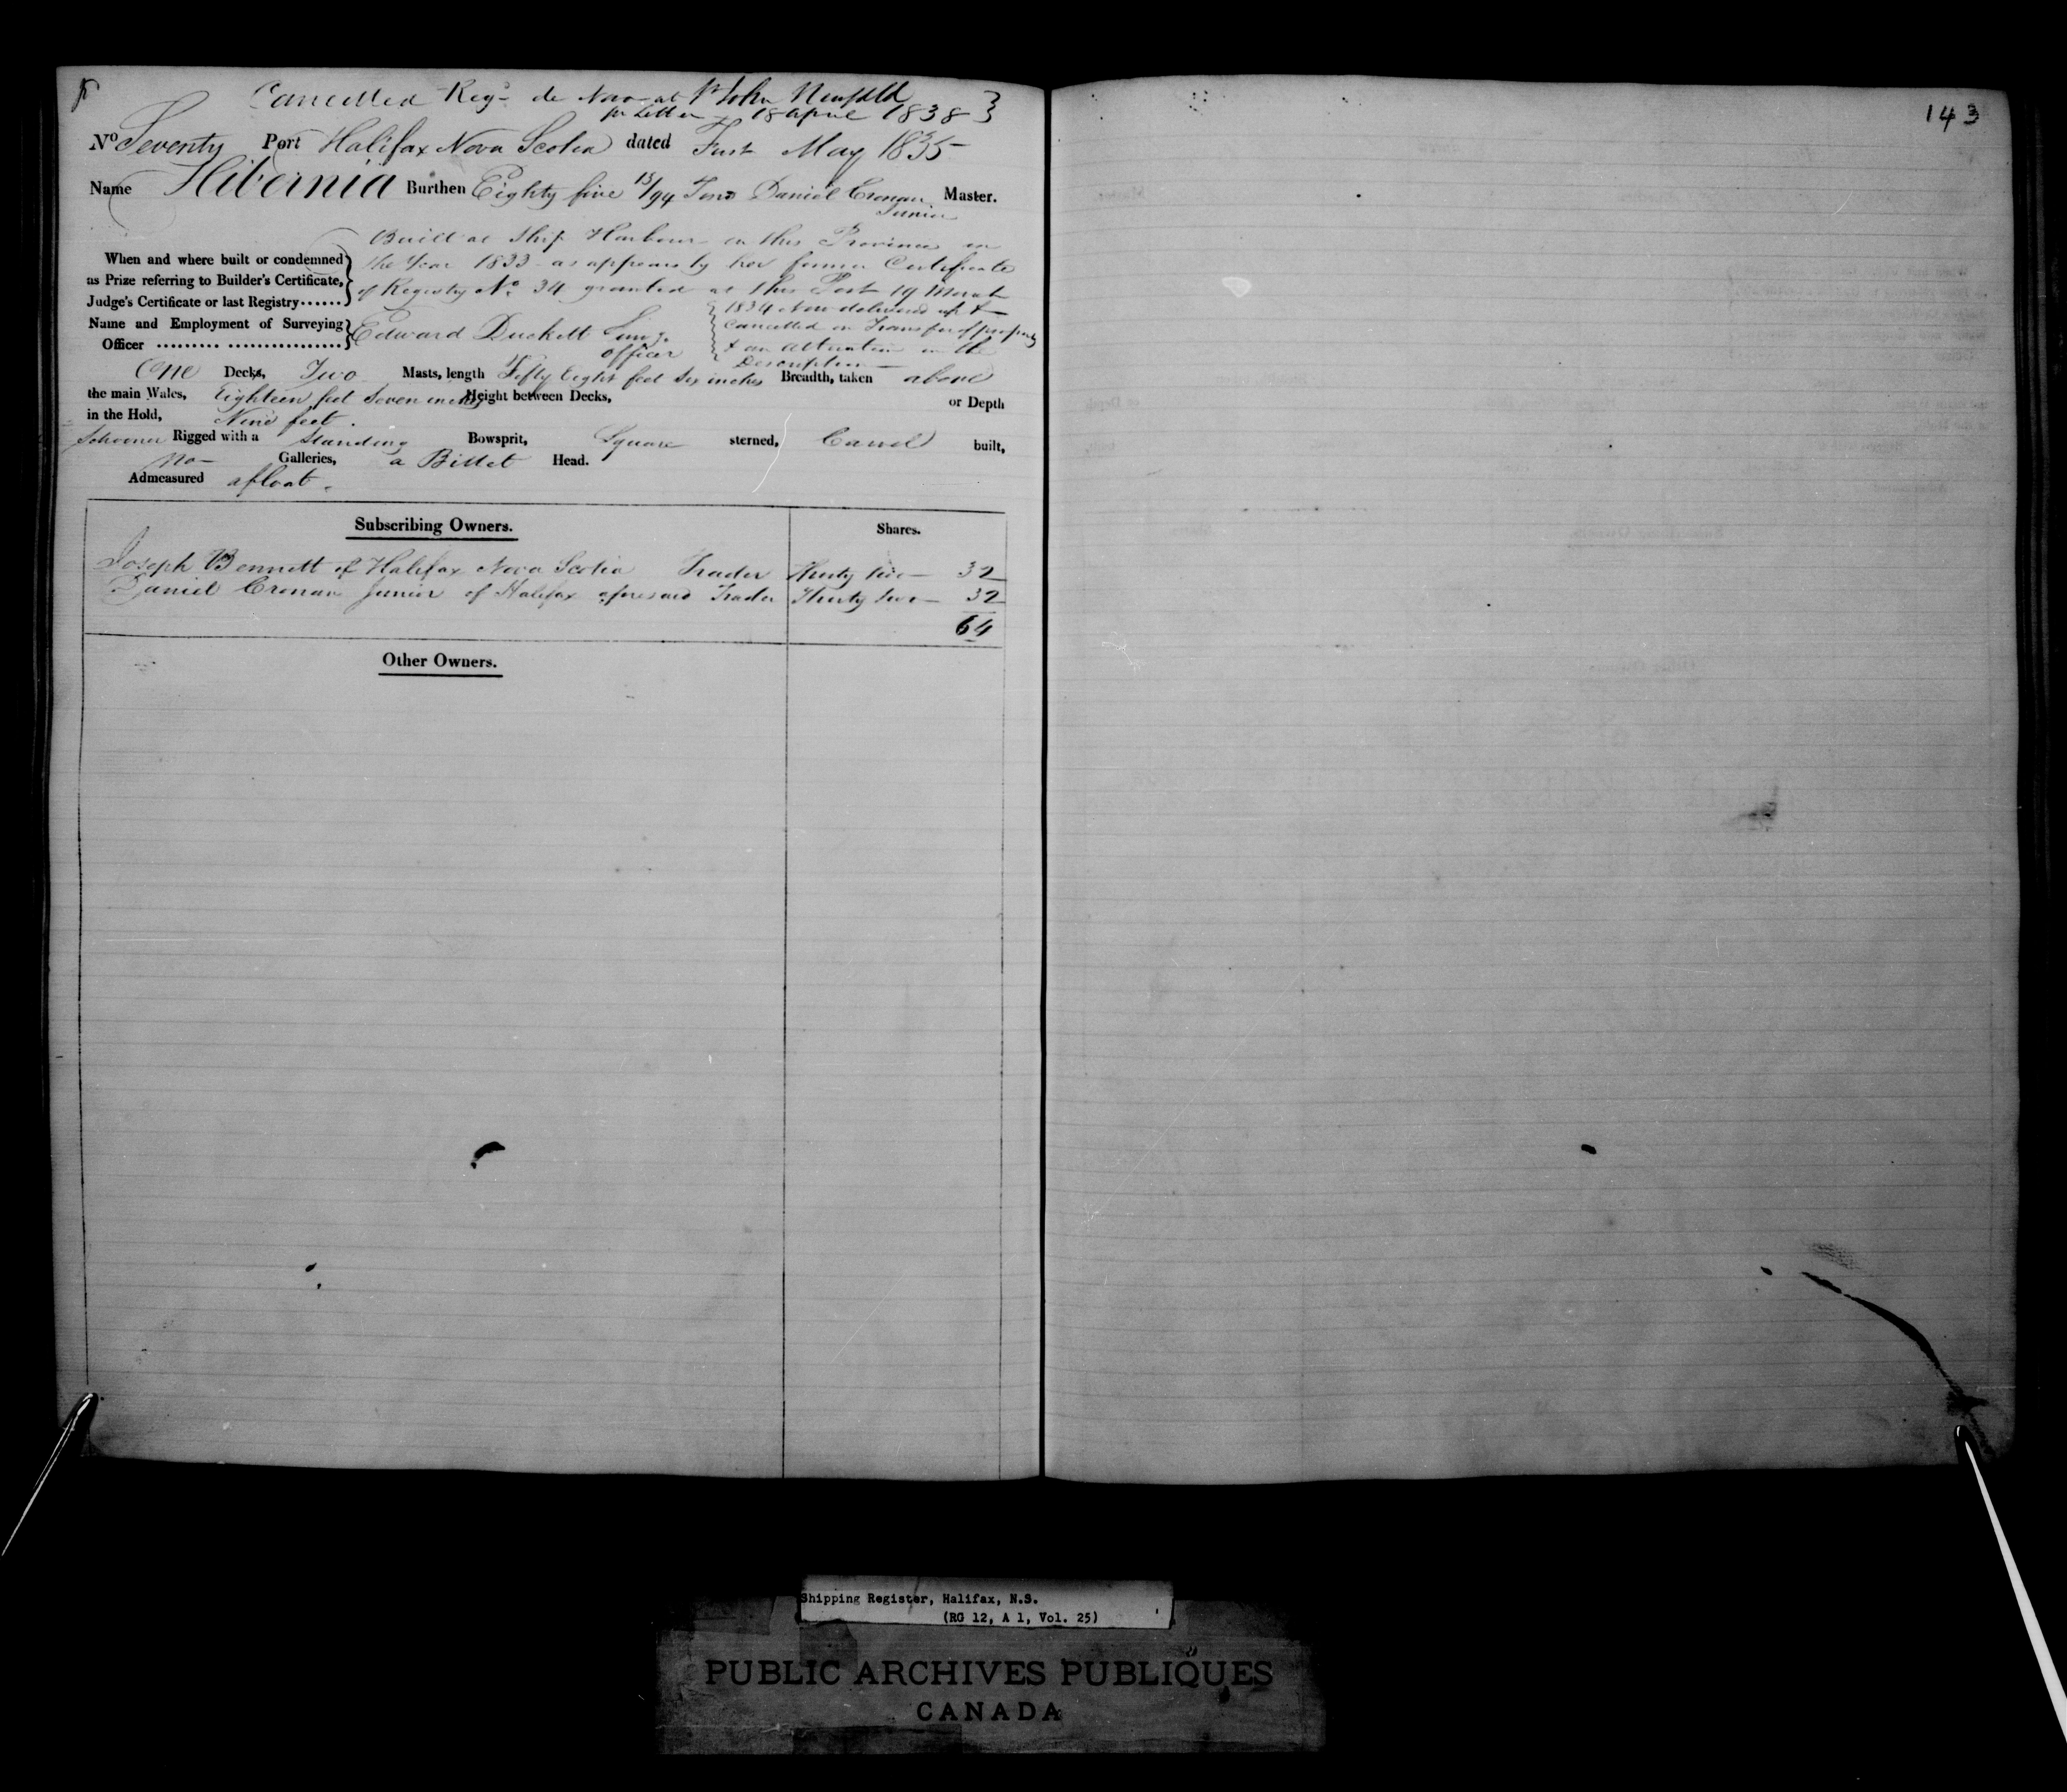 Cancelled Regd de Novo at St John Newfdld
pr Letter 18 April 1838
143
No Seventy Port Halifax Nova Scotia dated First May 1835
Name Hibernia Burthen Eighty five 15/94 Tons Daniel Cronan Master.
Junior
Built at Ship Harbour in this Province in
When and where built or condemned the Year 1833 as appears by her former Certificate
as Prize referring to Builder's Certificate,
Judge's Certificate or last Registry...... of Registry No. 34 granted at this Port 19 March
1834 Now delivered up &
Name and Employment of Surveying Edward Duckett Surv.g cancelled on Transfer of property
Officer ......... ................. officer & an alteration in the
Description
One Decks, Two Masts, length Fifty Eight feet Six inches Breadth, taken above
the main Wales, Eighteen feet Seven inches Height between Decks, or Depth
in the Hold, Nine feet.
Schooner Rigged with a Standing Bowsprit, Square sterned, Carvel built,
no Galleries, a Billet Head.
Admeasured afloat.
Subscribing Owners. Shares.
Joseph Bennett of Halifax Nova Scotia Trader Thirty two 32
Daniel Cronan Junior of Halifax aforesaid Trader Thirty two 32
64
Other Owners.
Shipping Register, Halifax, N.S.
(RG 12, A 1, Vol. 25)
PUBLIC ARCHIVES PUBLIQUES
CANADA